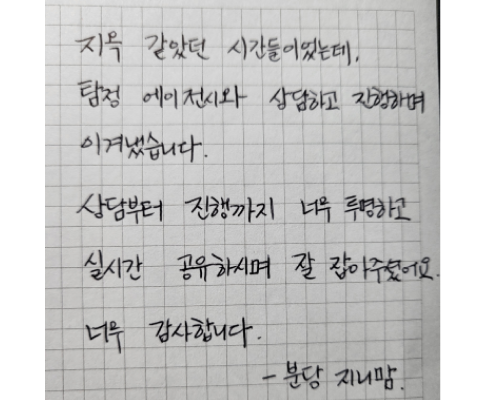 지옥 같았던 시간들이었는데,
탐정 에이전시와 상담하고 진행하며
이겨냈습니다.
상담부터 진행까지 너무 투명하고
실시간 공유하시며 잘 잡아주셨어요.
너무 감사합니다.
- 분당 지니맘.